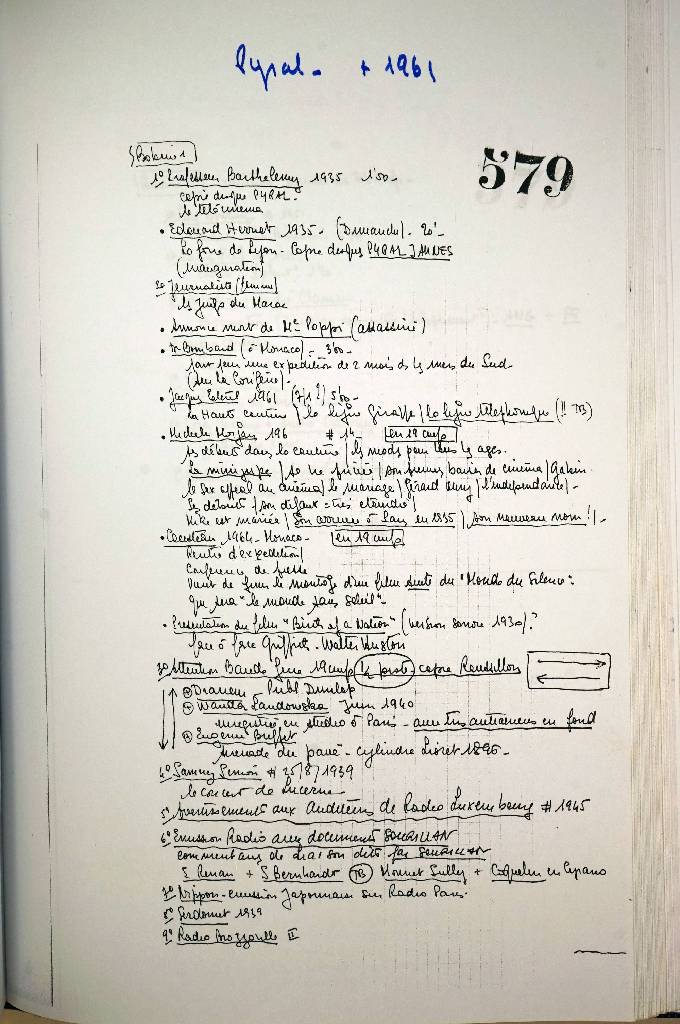 Pyral - + 1961
579
Bobine 1
1° Professeur Barthelemy 1935 1'50 -
copie disque PYRAL -
le telecinema
• Edouard Herriot 1935 - (Dimanche) - 20' -
La foire de Lyon - Copie disques PYRAL JAUNES
(Inauguration)
2° Journaliste (femme)
les juifs du Maroc
• Annonce mort de Me Poppi (assassiné)
• Dr Bombard (à Monaco) - 3'00 -
part pour une expedition de 2 mois ds les mers du Sud -
(sur la Coryfène) -
• Jacques 1961 (7/1?) 5'00 -
La Haute couture / la ligne Giraffe / la ligne telephonique (!! TB)
• Michele Morgan 196 # 14 - en 19 cm/s
ses débuts dans la couture / les mods pour tous les ages.
La minijupe / sa vie privée / son premier baiser de cinéma / Gabin
le sex appeal au cinéma / le mariage / Gérard Oury / l'independance / -
Ses defauts / son défaut = très etendue /
Mike est mariée / Son arrivée à Paris en 1935 / son nouveau nom ! / -
• Cousteau 1964 - Monaco - en 19 cm/s
Rentre d'expedition /
Conference de presse
Vient de finir le montage d'un film suite du "Monde du Silence" :
qui sera "le monde sans soleil" -
• Presentation du film "Birth of a Nation" (version sonore 1930) ?
face à face Griffith - Walter Huston
3° Attention Bande fine 19 cm/s 1/2 piste copie Roussillon
Dranem Publ Dunlop
Wanda Landowska Juin 1940
enregistrée en studio à Paris - avec tirs antiaériens en fond
Eugenie Buffet
Serenade du pavé - cylindre Lioret 1896 -
4° Sammy Simon # 25/8/1939
le concert de Lucerne
5° Avertissement aux auditeurs de Radio Luxembourg # 1945
6° Emission Radio avec documents SOURILLAN
commentaires de liaison dits par SOURILLAN
E Renan + S Bernhardt (TB) Mounet Sully + Coquelin en Cyrano
7° Nippon - emission Japonaise sur Radio Paris.
8° 1939
9° Radio II